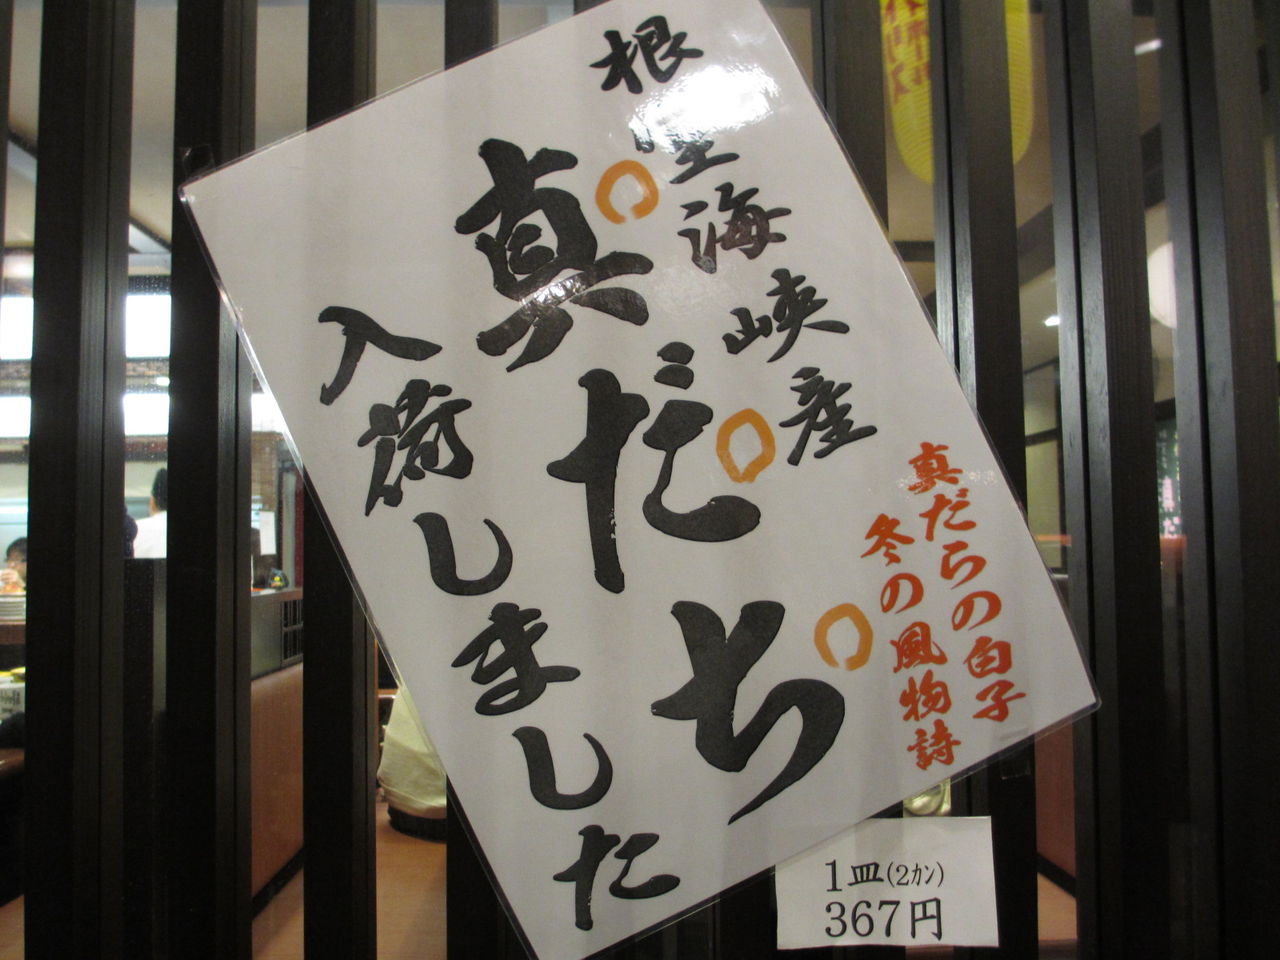 根室海峡産
真だち
入荷しました
真だらの白子
冬の風物詩
1皿(2カン)
367円